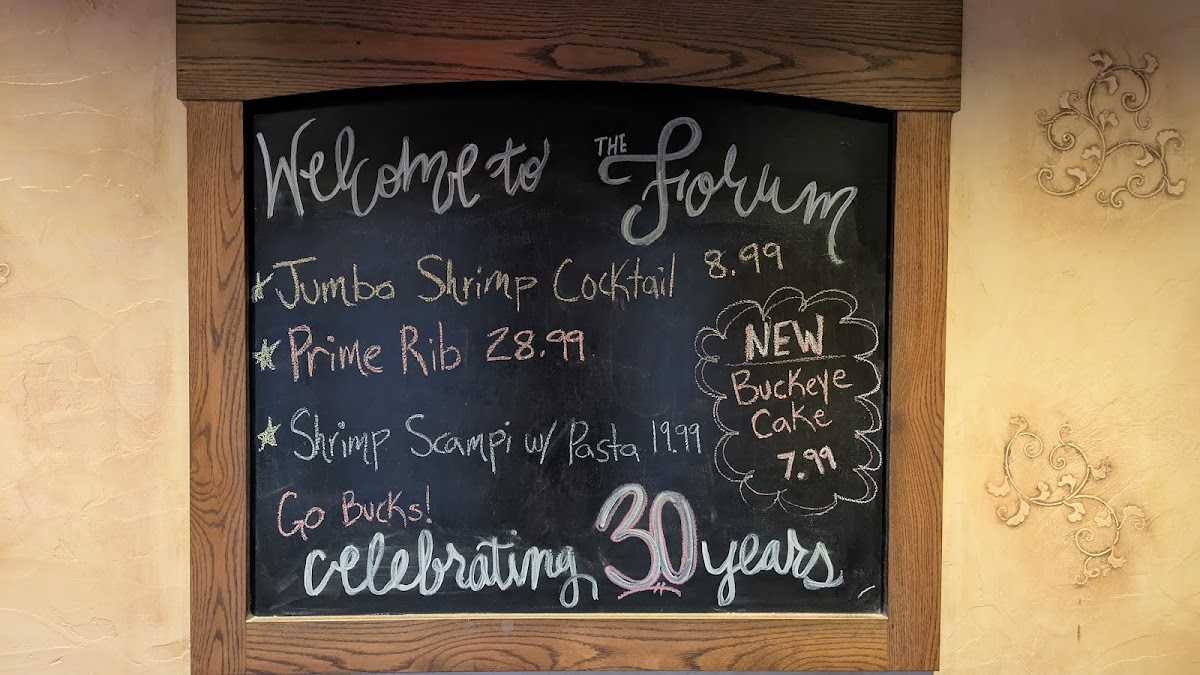 Welcome to THE Forum
Jumbo Shrimp Cocktail 8.99
Prime Rib 28.99
Shrimp Scampi w/ Pasta 19.99
NEW
Buckeye
Cake
7.99
Go Bucks!
celebrating 30 years